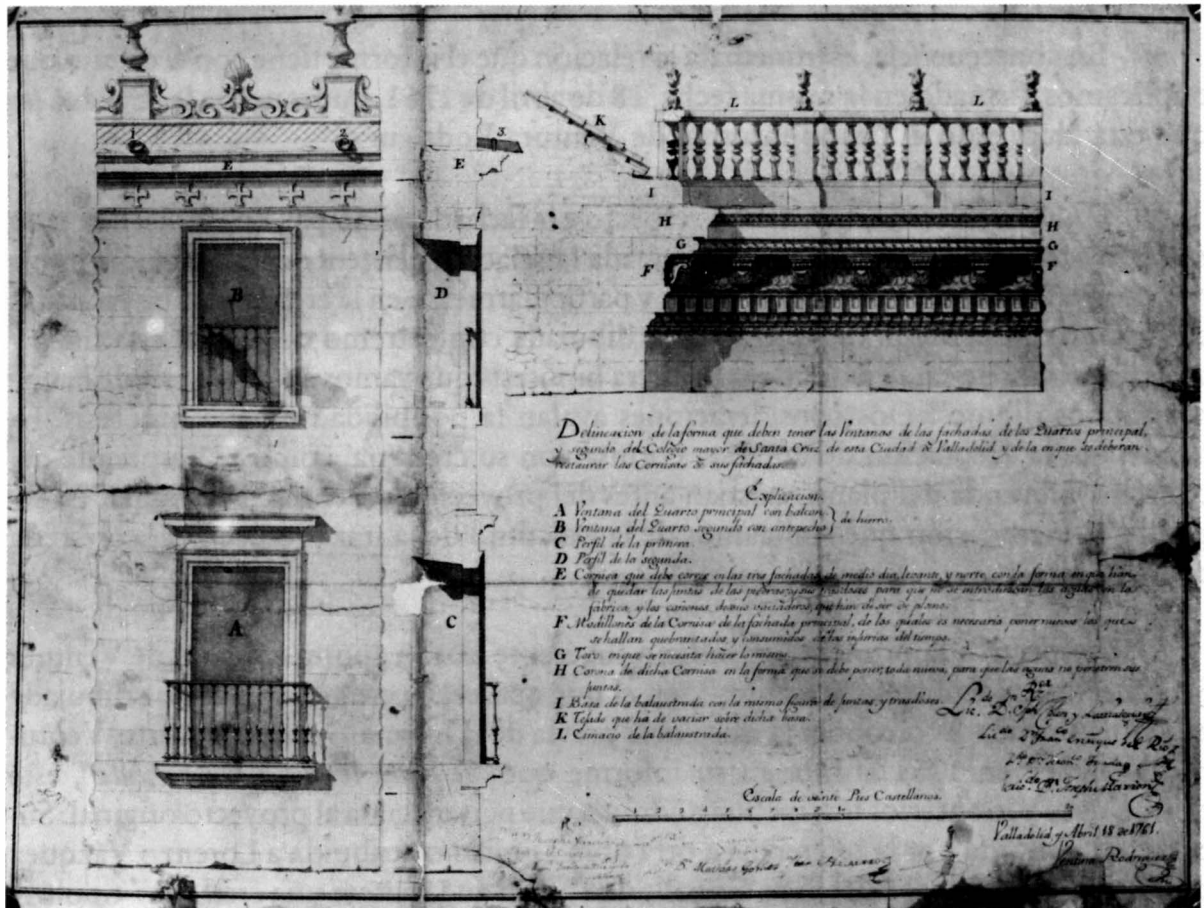 1
2
3.
E
E
K
L
L
I
I
H
H
G
G
F
F
B
D
A
C
Delineacion de la forma que deben tener las Ventanas de las fachadas de los Quartos principal,
y segundo del Colegio mayor de Santa Cruz de esta Ciudad de Valladolid y de la en que se deberan
restaurar las Cornisas de sus fachadas.
Explicacion.
A Ventana del Quarto principal con balcon
B Ventana del Quarto segundo con antepecho } de hierro.
C Perfil de la primera.
D Perfil de la segunda.
E Cornisa que debe correr en las tres fachadas de medio dia, levante, y norte, con la forma en que han
de quedar las juntas de las piedras, y sus trasdoses para que no se introduzcan las aguas en la
fabrica, y los cañones de sus vaciaderos, que han de ser de plomo.
F Modillones de la Cornisa de la fachada principal, de los quales es necesario poner nuevos los que
se hallan quebrantados, y consumidos de las injurias del tiempo.
G Toro, en que se necesita hacer lo mismo.
H Corona de dicha Cornisa en la forma que se debe poner, toda nueva, para que las aguas no penetren sus
juntas.
I Basa de la balaustrada con la misma figura de juntas, y trasdoses.
K Tejado que ha de vaciar sobre dicha basa.
L Cimacio de la balaustrada.
Escala de veinte Pies Castellanos.
Valladolid y Abril 18 de 1761.
Ventura Rodriguez